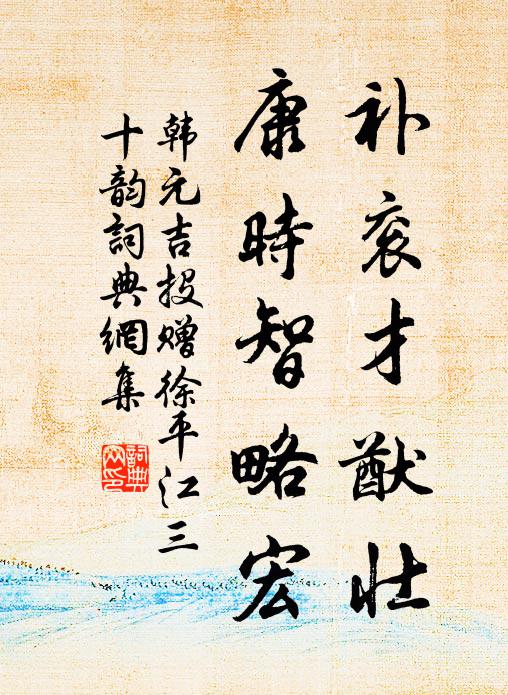 补衮才猷壮
康時智略宏
韩元吉投赠徐平江三
十韵詞典網集
詞典
网印